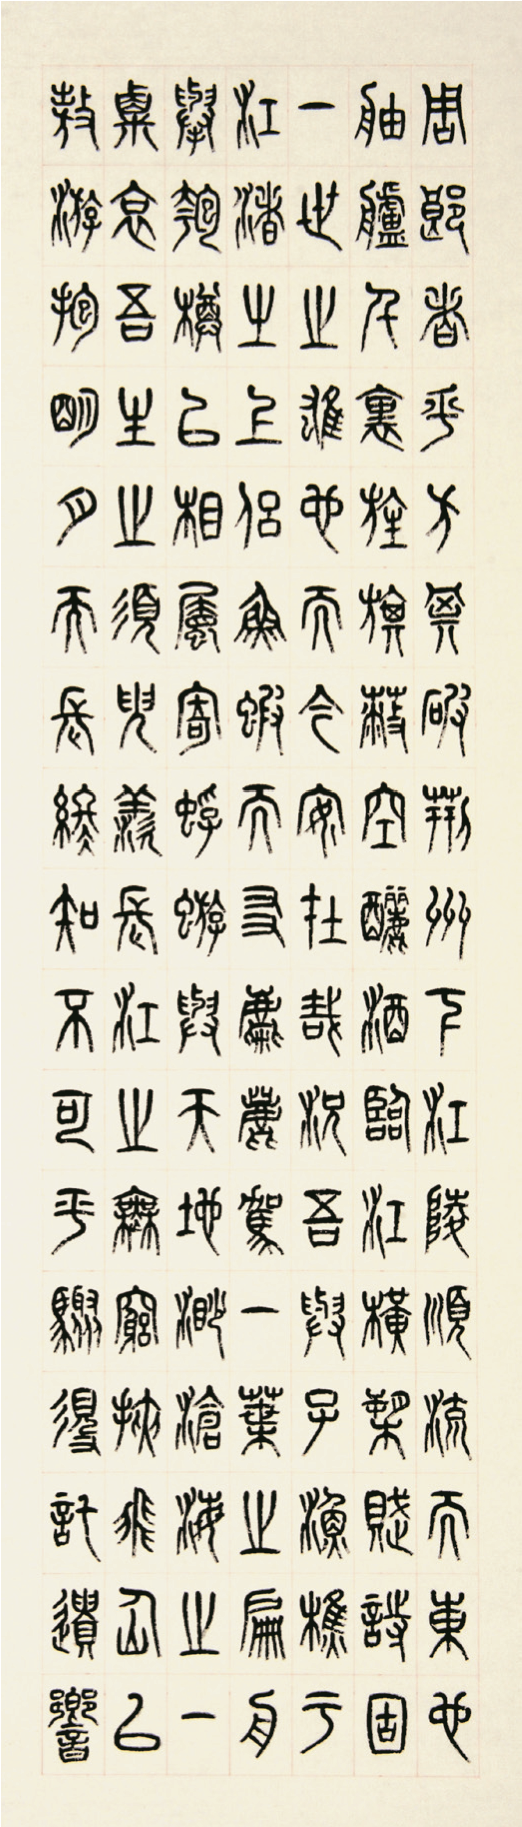 周郎者乎方其破荊州下江陵順流而東也
舳艫千裏旌旗蔽空釃酒臨江橫槊賦詩固
一世之雄也而今安在哉況吾與子漁樵于
江渚之上侶魚蝦而友麋鹿駕一葉之扁舟
舉匏樽以相屬寄蜉蝣與天地渺滄海之一
粟哀吾生之須臾羨長江之無窮挾飛仙以
敖游抱明月而長終知不可乎驟得託遺響